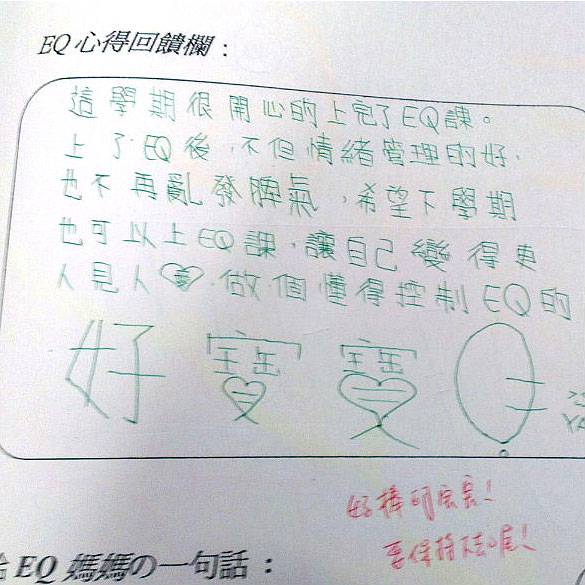 EQ 心得回饋欄：
這學期很開心的上完了EQ課。
上了EQ後，不但情緒管理的好，
也不再亂發脾氣，希望下學期
也可以上EQ課，讓自己變得更
人見人愛，做個懂得控制EQ的
好寶寶
好棒的宏宏！
要保持下去喔！
給EQ 媽媽の一句話：